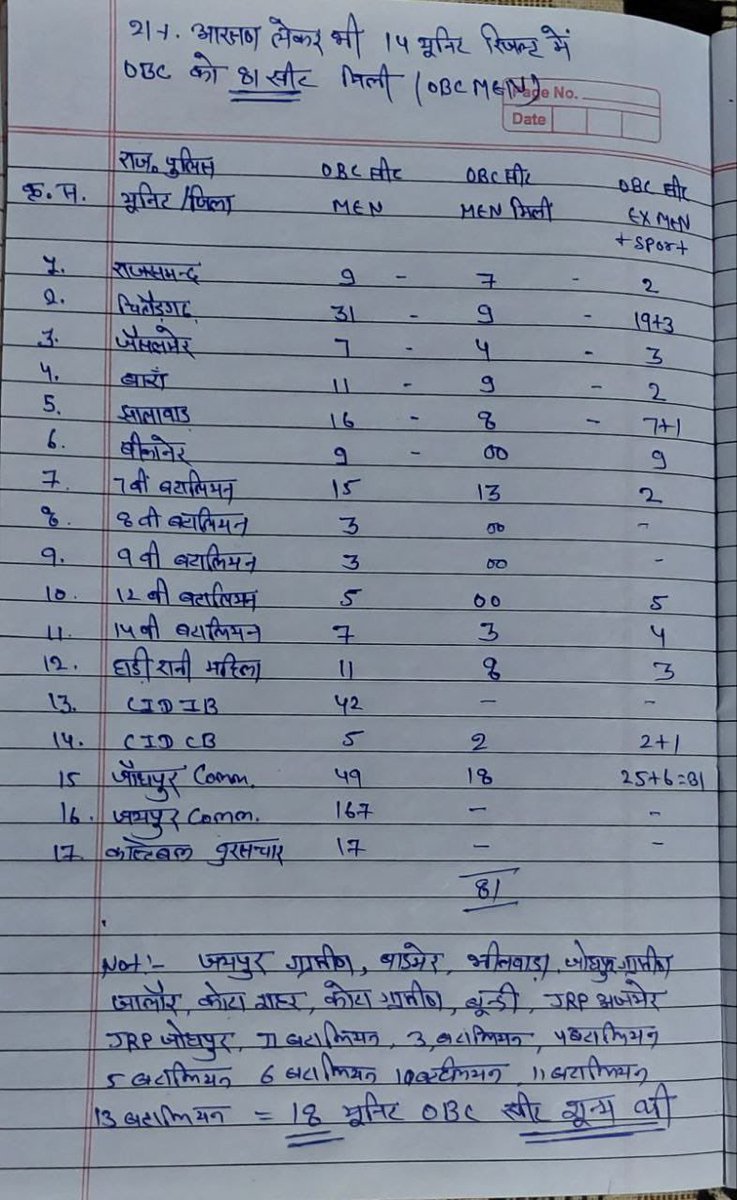 21%. आरक्षण लेकर भी 14 यूनिट रिजल्ट में
OBC को 81 सीट मिली (OBC MEN)
Page No.
Date
क्र.स. राज. पुलिस यूनिट/जिला OBC सीट MEN OBC सीट MEN मिली OBC सीट EX MEN + sport
1. राजसमन्द 9 - 7 - 2
2. चितौड़गढ़ 31 - 9 - 19+3
3. जैसलमेर 7 - 4 - 3
4. बारां 11 - 9 - 2
5. झालावाड 16 - 8 - 7+1
6. बीकानेर 9 - 00 9
7. 7वी बटालियन 15 13 2
8. 8वी बटालियन 3 00 -
9. 9वी बटालियन 3 00 -
10. 12वी बटालियन 5 00 5
11. 14वी बटालियन 7 3 4
12. हाडी रानी महिला 11 8 3
13. CID IB 42 - -
14. CID CB 5 2 2+1
15 जोधपुर Comm. 49 18 25+6=31
16. जयपुर Comm. 167 - -
17. कांस्टेबल दुरसंचार 17 - -
81
Not:- जयपुर ग्रामीण, बाडमेर, भीलवाड़ा, जोधपुर ग्रामीण
जालौर, कोटा शहर, कोटा ग्रामीण, बून्दी, JRP अजमेर
JRP जोधपुर, बटालियन, 3 बटालियन, 4 बटालियन
5 बटालियन 6 बटालियन 10 बटालियन, 11 बटालियन
13 बटालियन = 18 यूनिट OBC सीट शून्य थी